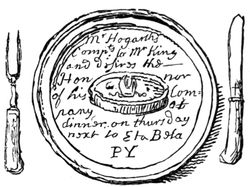 Mr Hogarth's
Comp.ts to Mr King
and desires the
Hon nor
of his Com-
pany at
dinner on thursday
next to Eta Beta
PY